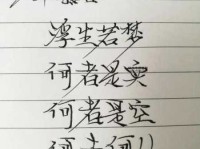 浮生若梦
何者是实
何者是空
何去何